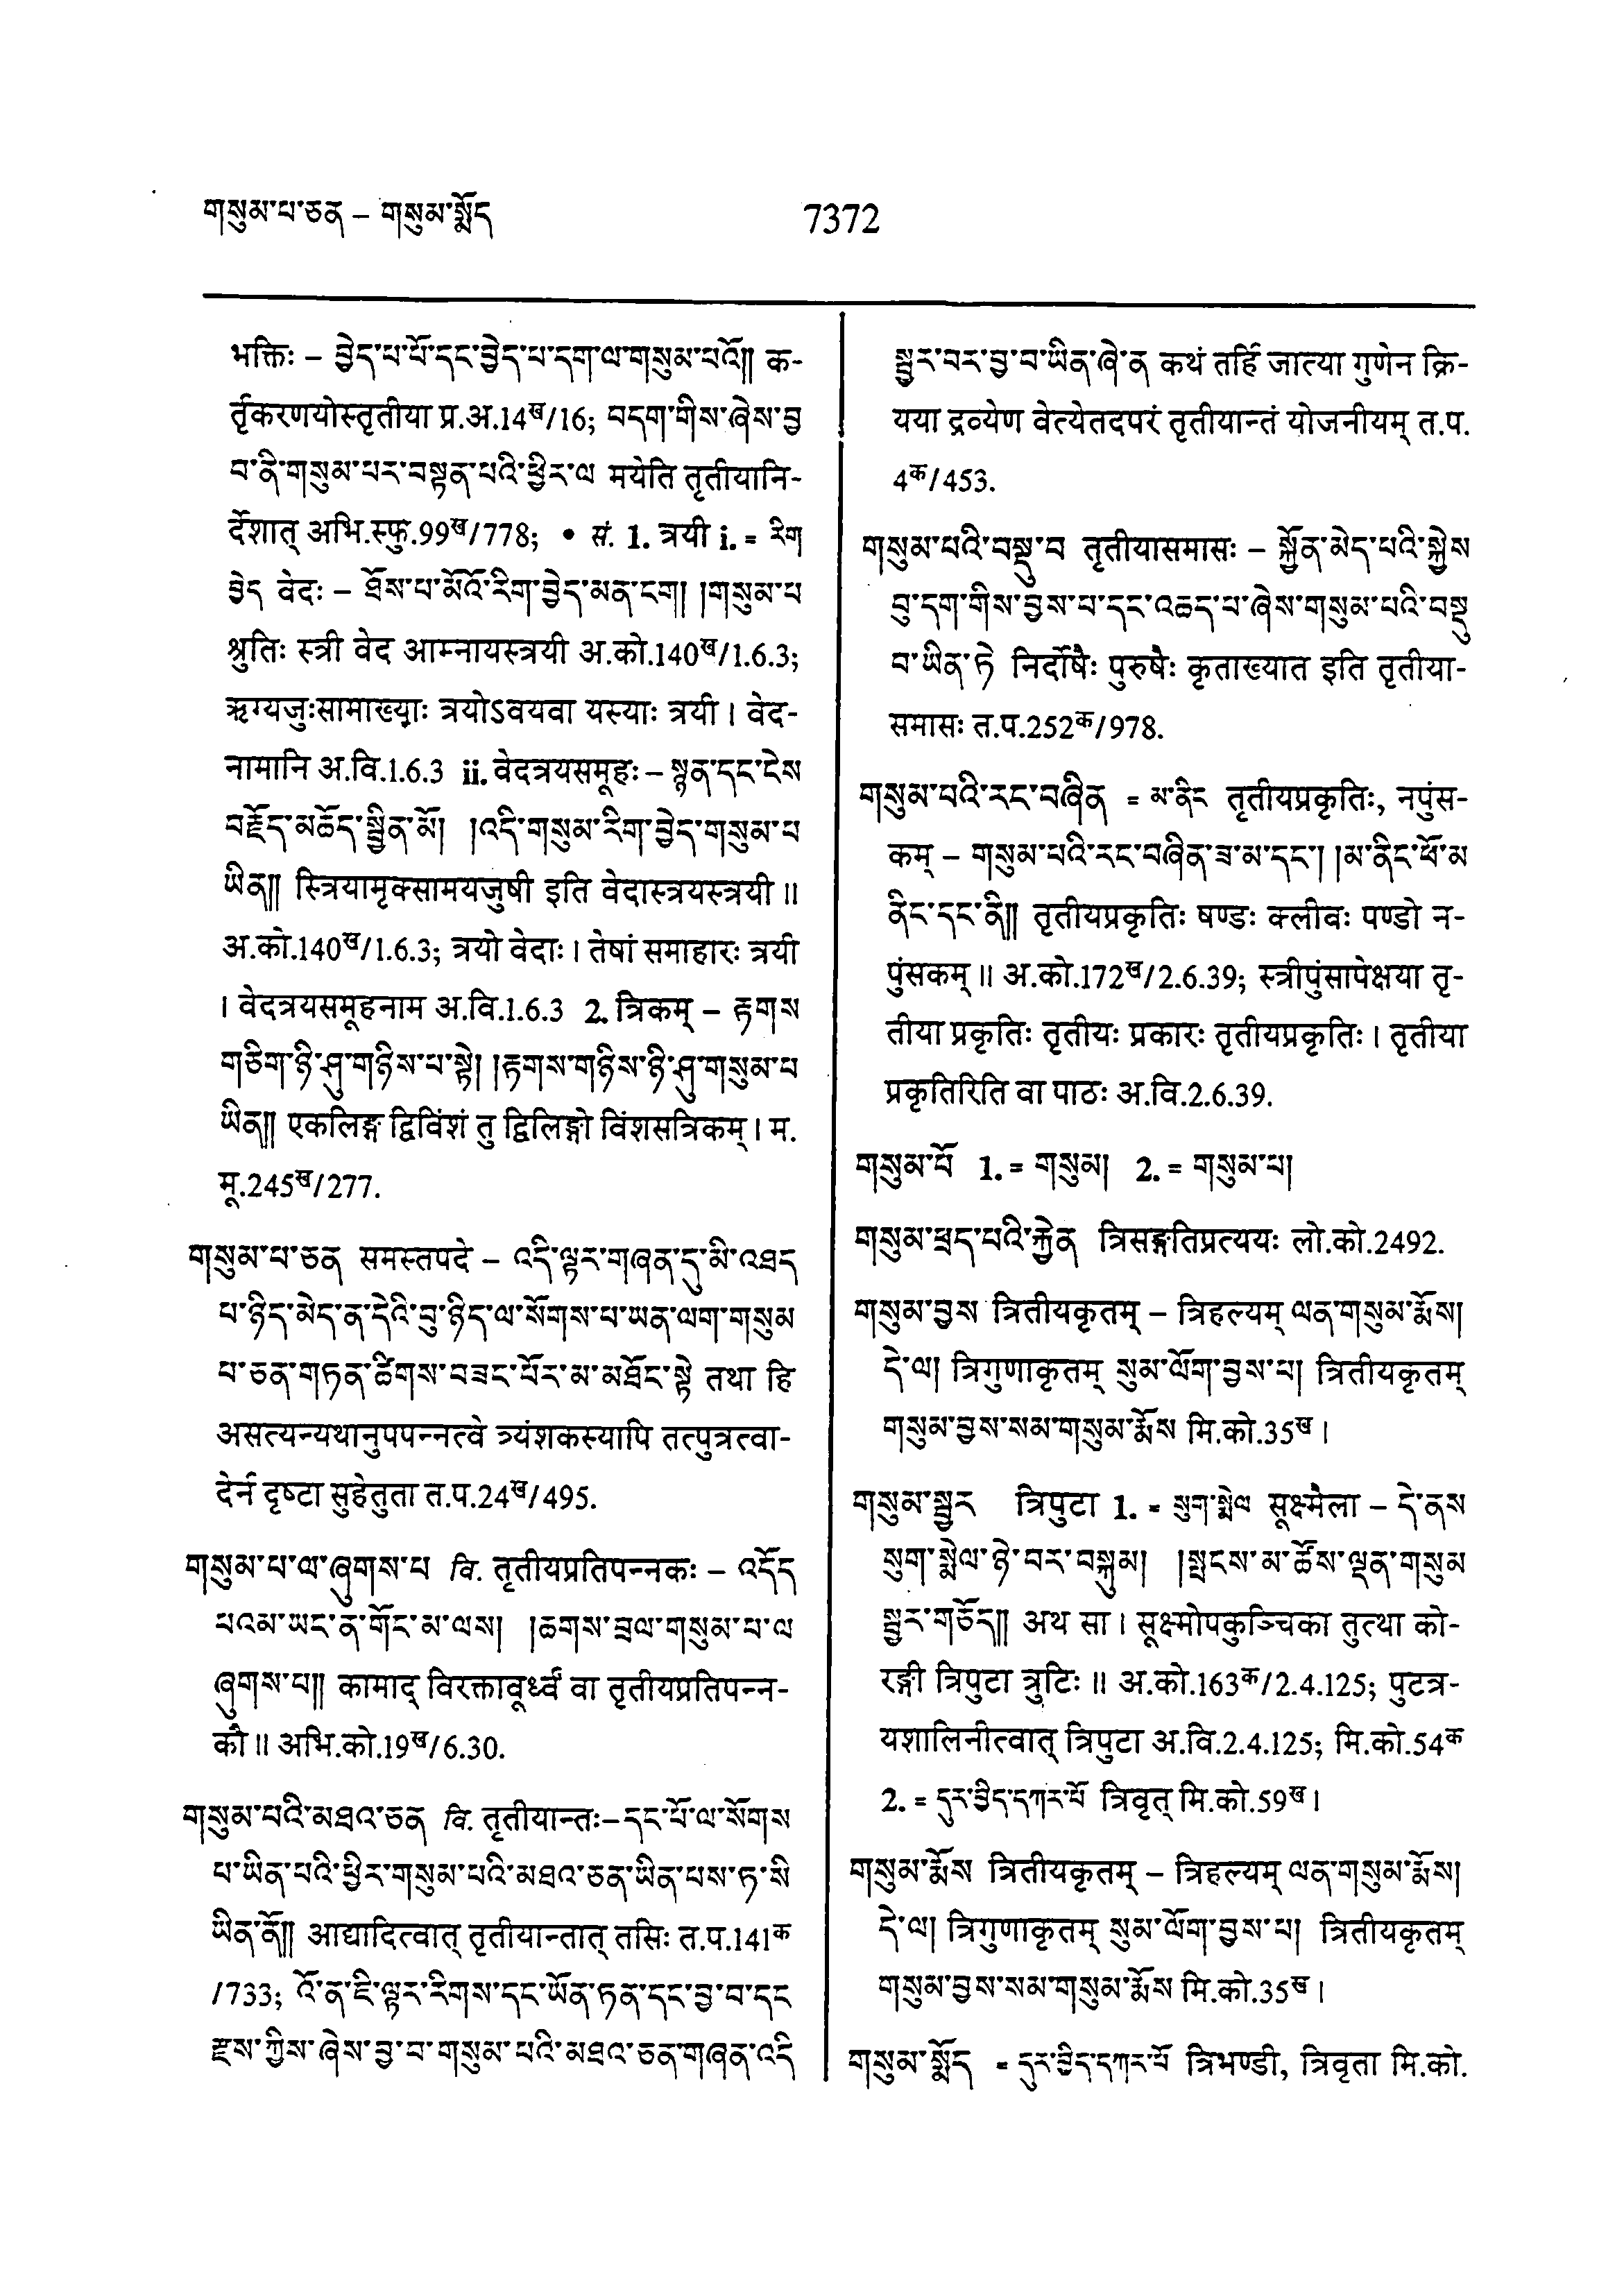 གསུམ་པ་ཅན – གསུམ་སྨོད
7372
भक्तिः – བྱེད་པ་པོ་དང་བྱེད་པ་དག་ལ་གསུམ་པའོ།། क-
र्तृकरणयोस्तृतीया प्र.अ.14ख/16; བདག་གིས་ཞེས་བྱ
བ་ནི་གསུམ་པར་བསྟན་པའི་ཕྱིར་ལ मयेति तृतीयानि-
र्देशात् अभि.स्फु.99ख/778; • सं. 1. त्रयी i. = རིག
བྱེད वेदः – ཐོས་པ་མོའོ་རིག་བྱེད་མན་ངག། །གསུམ་པ
श्रुतिः स्त्री वेद आम्नायस्त्रयी अ.को.140ख/1.6.3;
ऋग्यजुःसामाख्याः त्रयोऽवयवा यस्याः त्रयी । वेद-
नामानि अ.वि.1.6.3 ii. वेदत्रयसमूहः – སྙན་དང་ངེས
བརྗོད་མཆོད་སྦྱིན་མོ། །འདི་གསུམ་རིག་བྱེད་གསུམ་པ
ཡིན།། स्त्रियामृक्सामयजुषी इति वेदास्त्रयस्त्रयी ॥
अ.को.140ख/1.6.3; त्रयो वेदाः । तेषां समाहारः त्रयी
। वेदत्रयसमूहनाम अ.वि.1.6.3 2. त्रिकम् – རྟགས
གཅིག་ཉི་ཤུ་གཉིས་པ་སྟེ། །རྟགས་གཉིས་ཉི་ཤུ་གསུམ་པ
ཡིན།། एकलिङ्ग द्विविंशं तु द्विलिङ्गो विंशसत्रिकम् । म.
मू.245ख/277.
གསུམ་པ་ཅན समस्तपदे – འདི་ལྟར་གཞན་དུ་མི་འཐད
པ་ཉིད་མེད་ན་དེའི་བུ་ཉིད་ལ་སོགས་པ་ཡན་ལག་གསུམ
པ་ཅན་གཏན་ཚིགས་བཟང་པོར་མ་མཐོང་སྟེ तथा हि
असत्यन्यथानुपपन्नत्वे त्र्यंशकस्यापि तत्पुत्रत्वा-
देर्न दृष्टा सुहेतुता त.प.24ख/495.
གསུམ་པ་ལ་ཞུགས་པ वि. तृतीयप्रतिपन्नकः – འདོད
པའམ་ཡང་ན་གོང་མ་ལས། །ཆགས་བྲལ་གསུམ་པ་ལ
ཞུགས་པ།། कामाद् विरक्तावूर्ध्वं वा तृतीयप्रतिपन्न-
कौ ॥ अभि.को.19ख/6.30.
གསུམ་པའི་མཐའ་ཅན वि. तृतीयान्तः–དང་པོ་ལ་སོགས
པ་ཡིན་པའི་ཕྱིར་གསུམ་པའི་མཐའ་ཅན་ཡིན་པས་ཏ་སི
ཡིན་ནོ།། आद्यादित्वात् तृतीयान्तात् तसिः त.प.141क
/733; འོ་ན་ཇི་ལྟར་རིགས་དང་ཡོན་ཏན་དང་བྱ་བ་དང
རྫས་ཀྱིས་ཞེས་བྱ་བ་གསུམ་པའི་མཐའ་ཅན་གཞན་འདི
སྦྱར་བར་བྱ་བ་ཡིན་ཞེ་ན कथं तर्हि जात्या गुणेन क्रि-
यया द्रव्येण वेत्येतदपरं तृतीयान्तं योजनीयम् त.प.
4क/453.
གསུམ་པའི་བསྡུ་བ तृतीयासमासः – སྐྱོན་མེད་པའི་སྐྱེས
བུ་དག་གིས་བྱས་པ་དང་འཆད་པ་ཞེས་གསུམ་པའི་བསྡུ
བ་ཡིན་ཏེ निर्दोषैः पुरुषैः कृताख्यात इति तृतीया-
समासः त.प.252क/978.
གསུམ་པའི་རང་བཞིན = མ་ནིང तृतीयप्रकृतिः, नपुंस-
कम् – གསུམ་པའི་རང་བཞིན་ཟ་མ་དང་། །མ་ནིང་ཕོ་མ
ནིང་དང་ནི།། तृतीयप्रकृतिः षण्डः क्लीवः पण्डो न-
पुंसकम् ॥ अ.को.172ख/2.6.39; स्त्रीपुंसापेक्षया तृ-
तीया प्रकृतिः तृतीयः प्रकारः तृतीयप्रकृतिः । तृतीया
प्रकृतिरिति वा पाठः अ.वि.2.6.39.
གསུམ་པོ 1. = གསུམ། 2. = གསུམ་པ།
གསུམ་ཕྲད་པའི་རྐྱེན त्रिसङ्गतिप्रत्ययः लो.को.2492.
གསུམ་བྱས त्रितीयकृतम् – त्रिहल्यम् ལན་གསུམ་རྨོས།
དེ་ལ། त्रिगुणाकृतम् སུམ་ལོག་བྱས་པ། त्रितीयकृतम्
གསུམ་བྱས་སམ་གསུམ་རྨོས मि.को.35ख ।
གསུམ་སྦྱར त्रिपुटा 1. = སུག་སྨེལ सूक्ष्मैला – དེ་ནས
སུག་སྨེལ་ཉེ་བར་བསྐུམ། །སྤངས་མ་ཚོས་ལྡན་གསུམ
སྦྱར་གཅོད།། अथ सा । सूक्ष्मोपकुञ्चिका तुत्था को-
रङ्गी त्रिपुटा त्रुटिः ॥ अ.को.163क/2.4.125; पुटत्र-
यशालिनीत्वात् त्रिपुटा अ.वि.2.4.125; मि.को.54क
2. = དུར་བྱིད་དཀར་པོ त्रिवृत् मि.को.59ख ।
གསུམ་རྨོས त्रितीयकृतम् – त्रिहल्यम् ལན་གསུམ་རྨོས།
དེ་ལ། त्रिगुणाकृतम् སུམ་ལོག་བྱས་པ། त्रितीयकृतम्
གསུམ་བྱས་སམ་གསུམ་རྨོས मि.को.35ख ।
གསུམ་སྨོད = དུར་བྱིད་དཀར་པོ त्रिभण्डी, त्रिवृता मि.को.